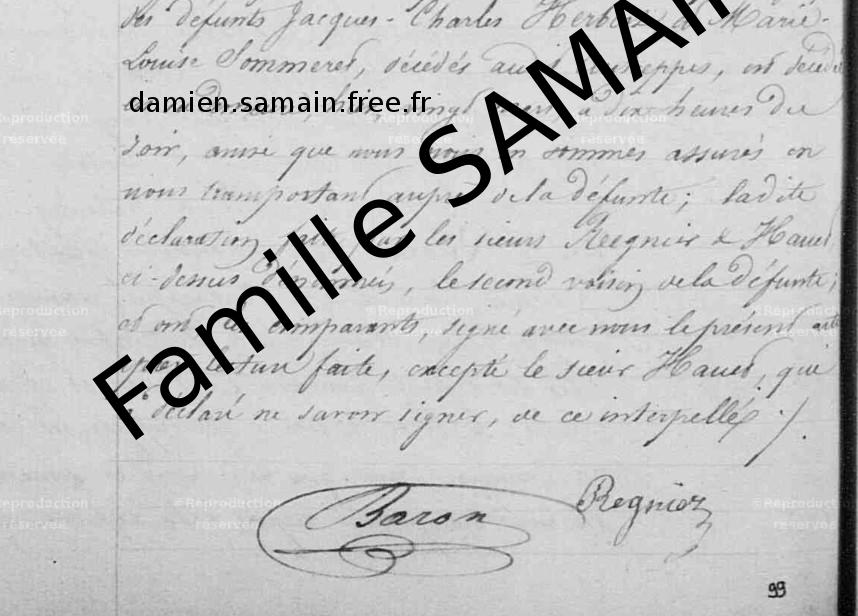 des défunts Jacques-Charles Herbert & Marie-
Louise Sommeret, décédés audit, est décédée
damien.samain.free.fr
à dix heures du
soir, ainsi que nous nous en sommes assurés en
nous transportant auprès de la défunte; ladite
déclaration faite par les sieurs Regnier & Hauet
ci-dessus dénommés, le second voisin de la défunte;
et ont les comparants, signé avec nous le présent acte
après lecture faite, excepté le sieur Hauet, qui
a déclaré ne savoir signer, de ce interpellé ./.
Famille SAMAIN
Baron
Regniez
99
©Reproduction
réservée